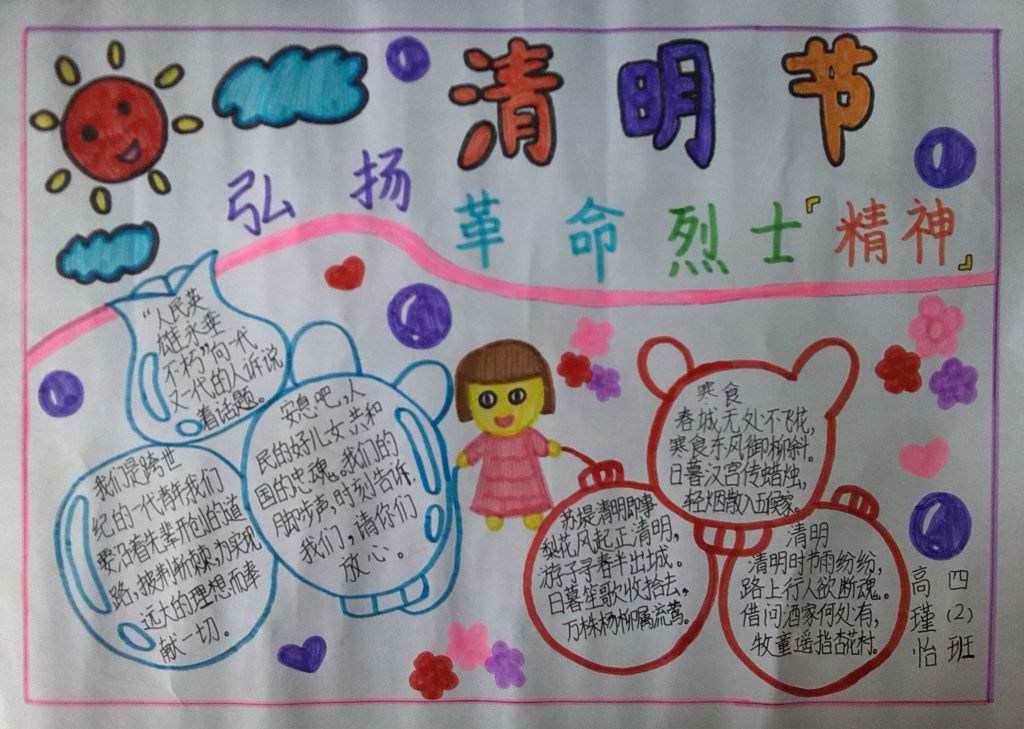 清明节
弘扬
革命烈士『精神』
“人民英
雄永垂
不朽”向一代
又一代的人诉说
着话题。
安息吧,人
民的好儿女,共和
国的忠魂。我们的
脚步声,时刻告诉
我们,请你们
放心。
我们是跨世
纪的一代青年我们
要沿着先辈开创的道
路,披荆斩棘,为实现
远大的理想而奉
献一切。
寒食
春城无处不飞花,
寒食东风御柳斜。
日暮汉宫传蜡烛,
轻烟散入五侯家。
苏堤清明即事
梨花风起正清明,
游子寻春半出城。
日暮笙歌收拾去,
万株杨柳属流莺。
清明
清明时节雨纷纷,
路上行人欲断魂。
借问酒家何处有,
牧童遥指杏花村。
四(2)班
高瑾怡